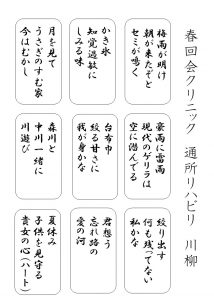 春回会クリニック 通所リハビリ 川柳
梅雨が明け
朝が来たぞと
セミが鳴く
豪雨に雷雨
現代のゲリラは
空に潜んでる
絞り出す
何も残ってない
私かな
かき氷
知覚過敏に
しみる味
台布巾
絞る甘さに
我が身かな
君想う
忘れ路の
愛の河
月を見て
うさぎのすむ家
今はむかし
森川と
中川一緒に
川遊び
夏休み
子供を見守る
貴女の心(ハート)